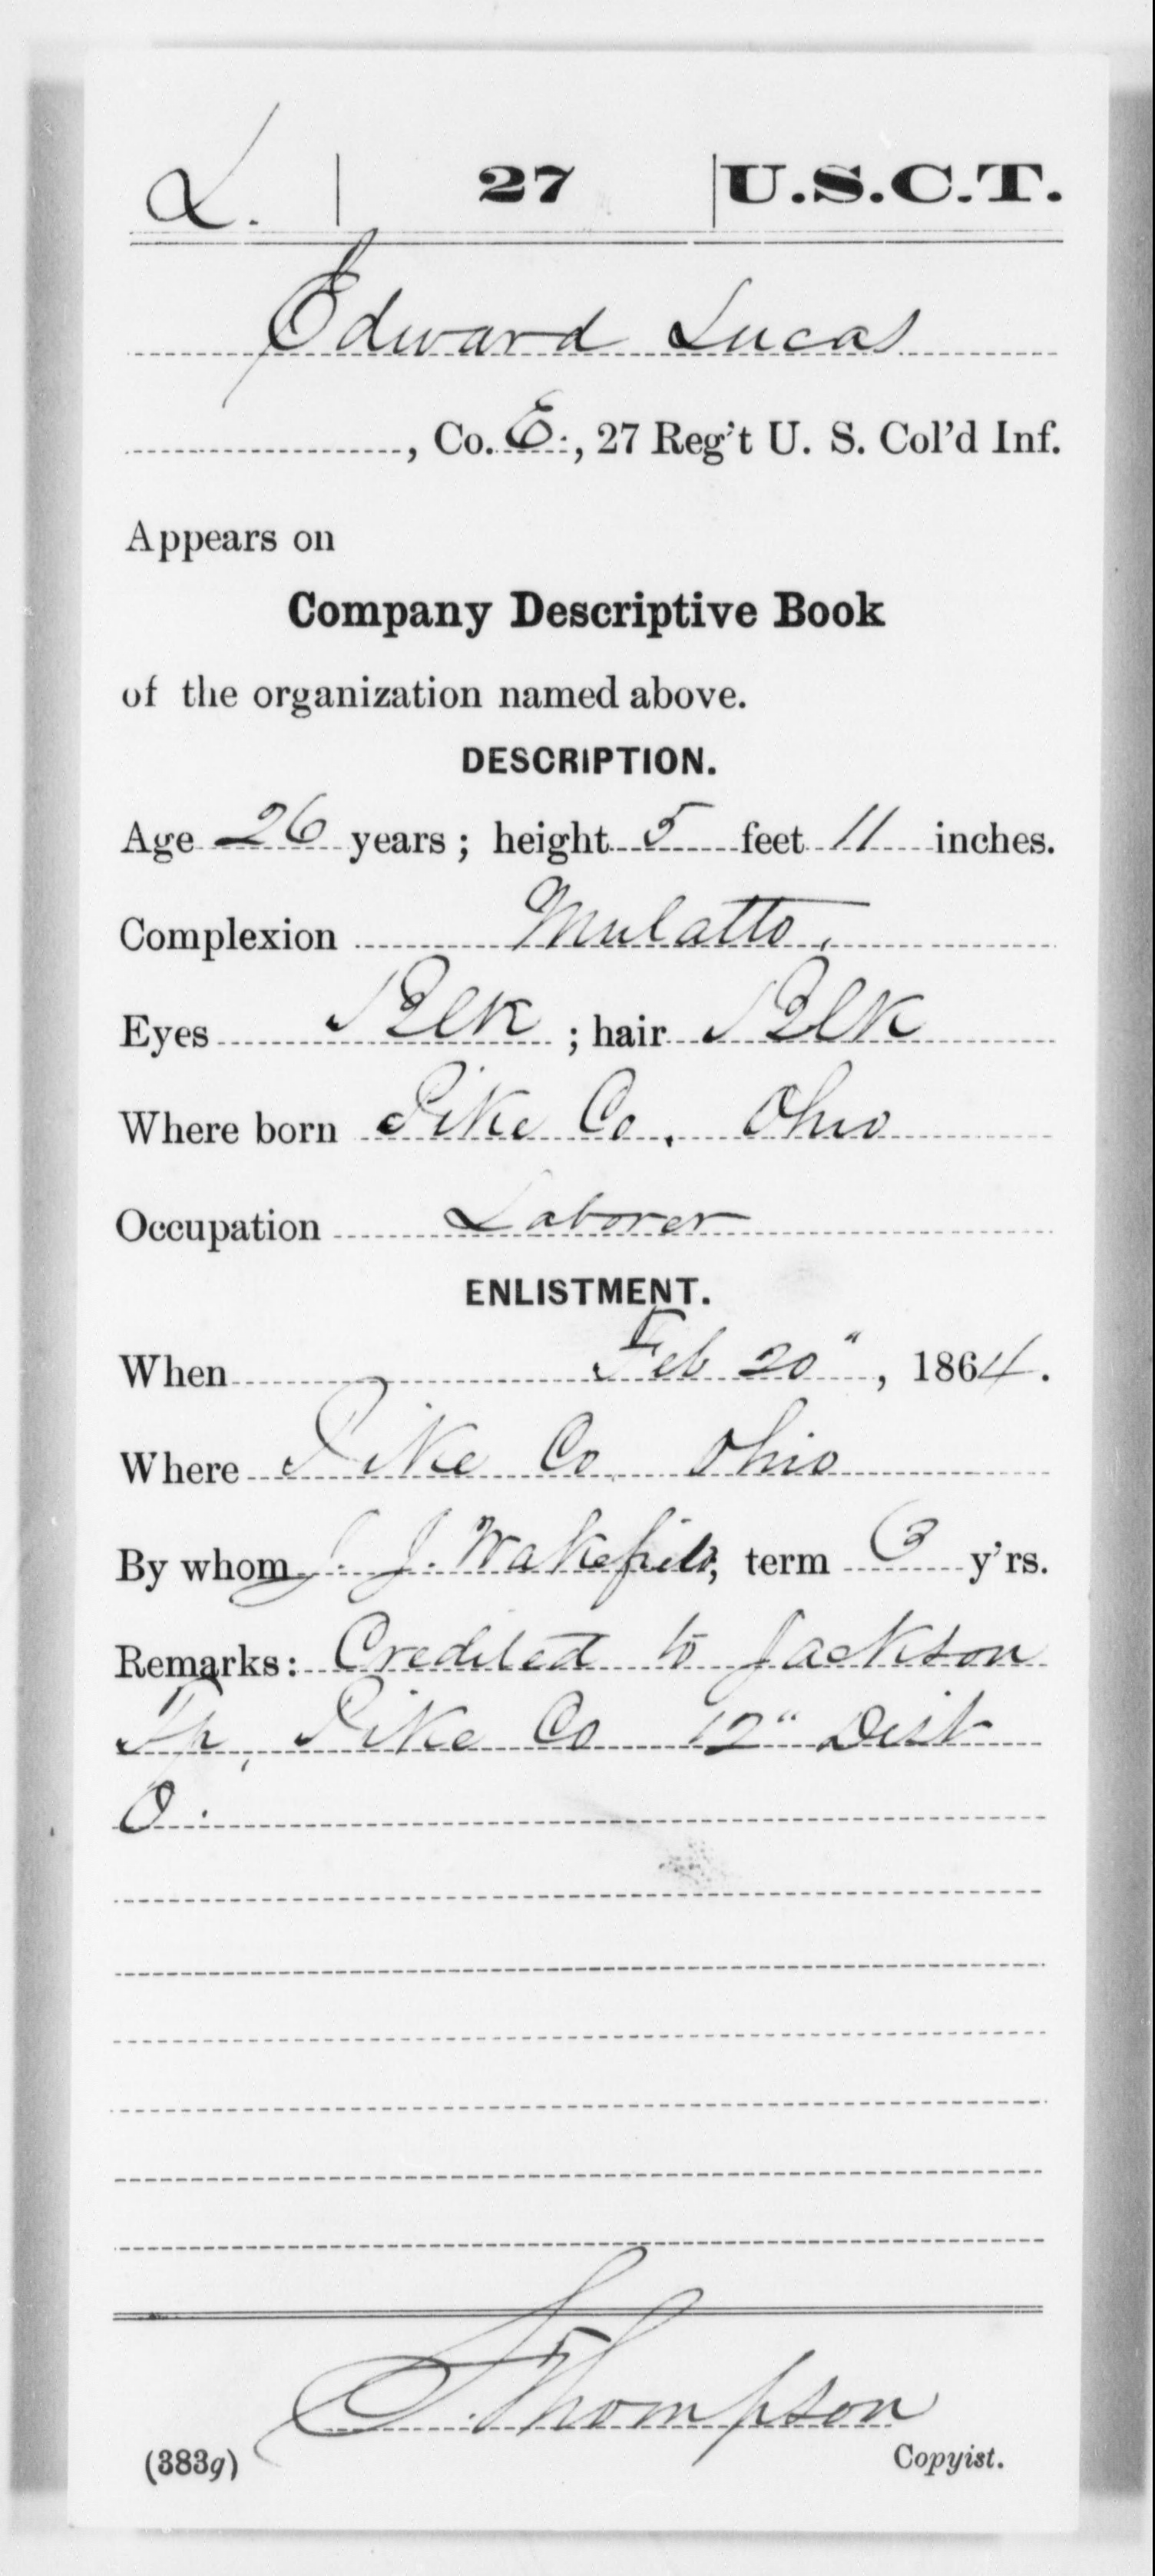 L. | 27 | U.S.C.T.
Edward Lucas
, Co. E., 27 Reg't U. S. Col'd Inf.
Appears on
Company Descriptive Book
of the organization named above.
DESCRIPTION.
Age 26 years; height 5 feet 11 inches.
Complexion Mulatto.
Eyes Blk; hair Blk
Where born Pike Co., Ohio
Occupation Laborer
ENLISTMENT.
When Feb 20", 1864.
Where Pike Co. Ohio
By whom J. J. Wakefield; term 3 y'rs.
Remarks: Credited to Jackson
Tp, Pike Co 12" Dist
O.
S. Thompson
(383g) Copyist.